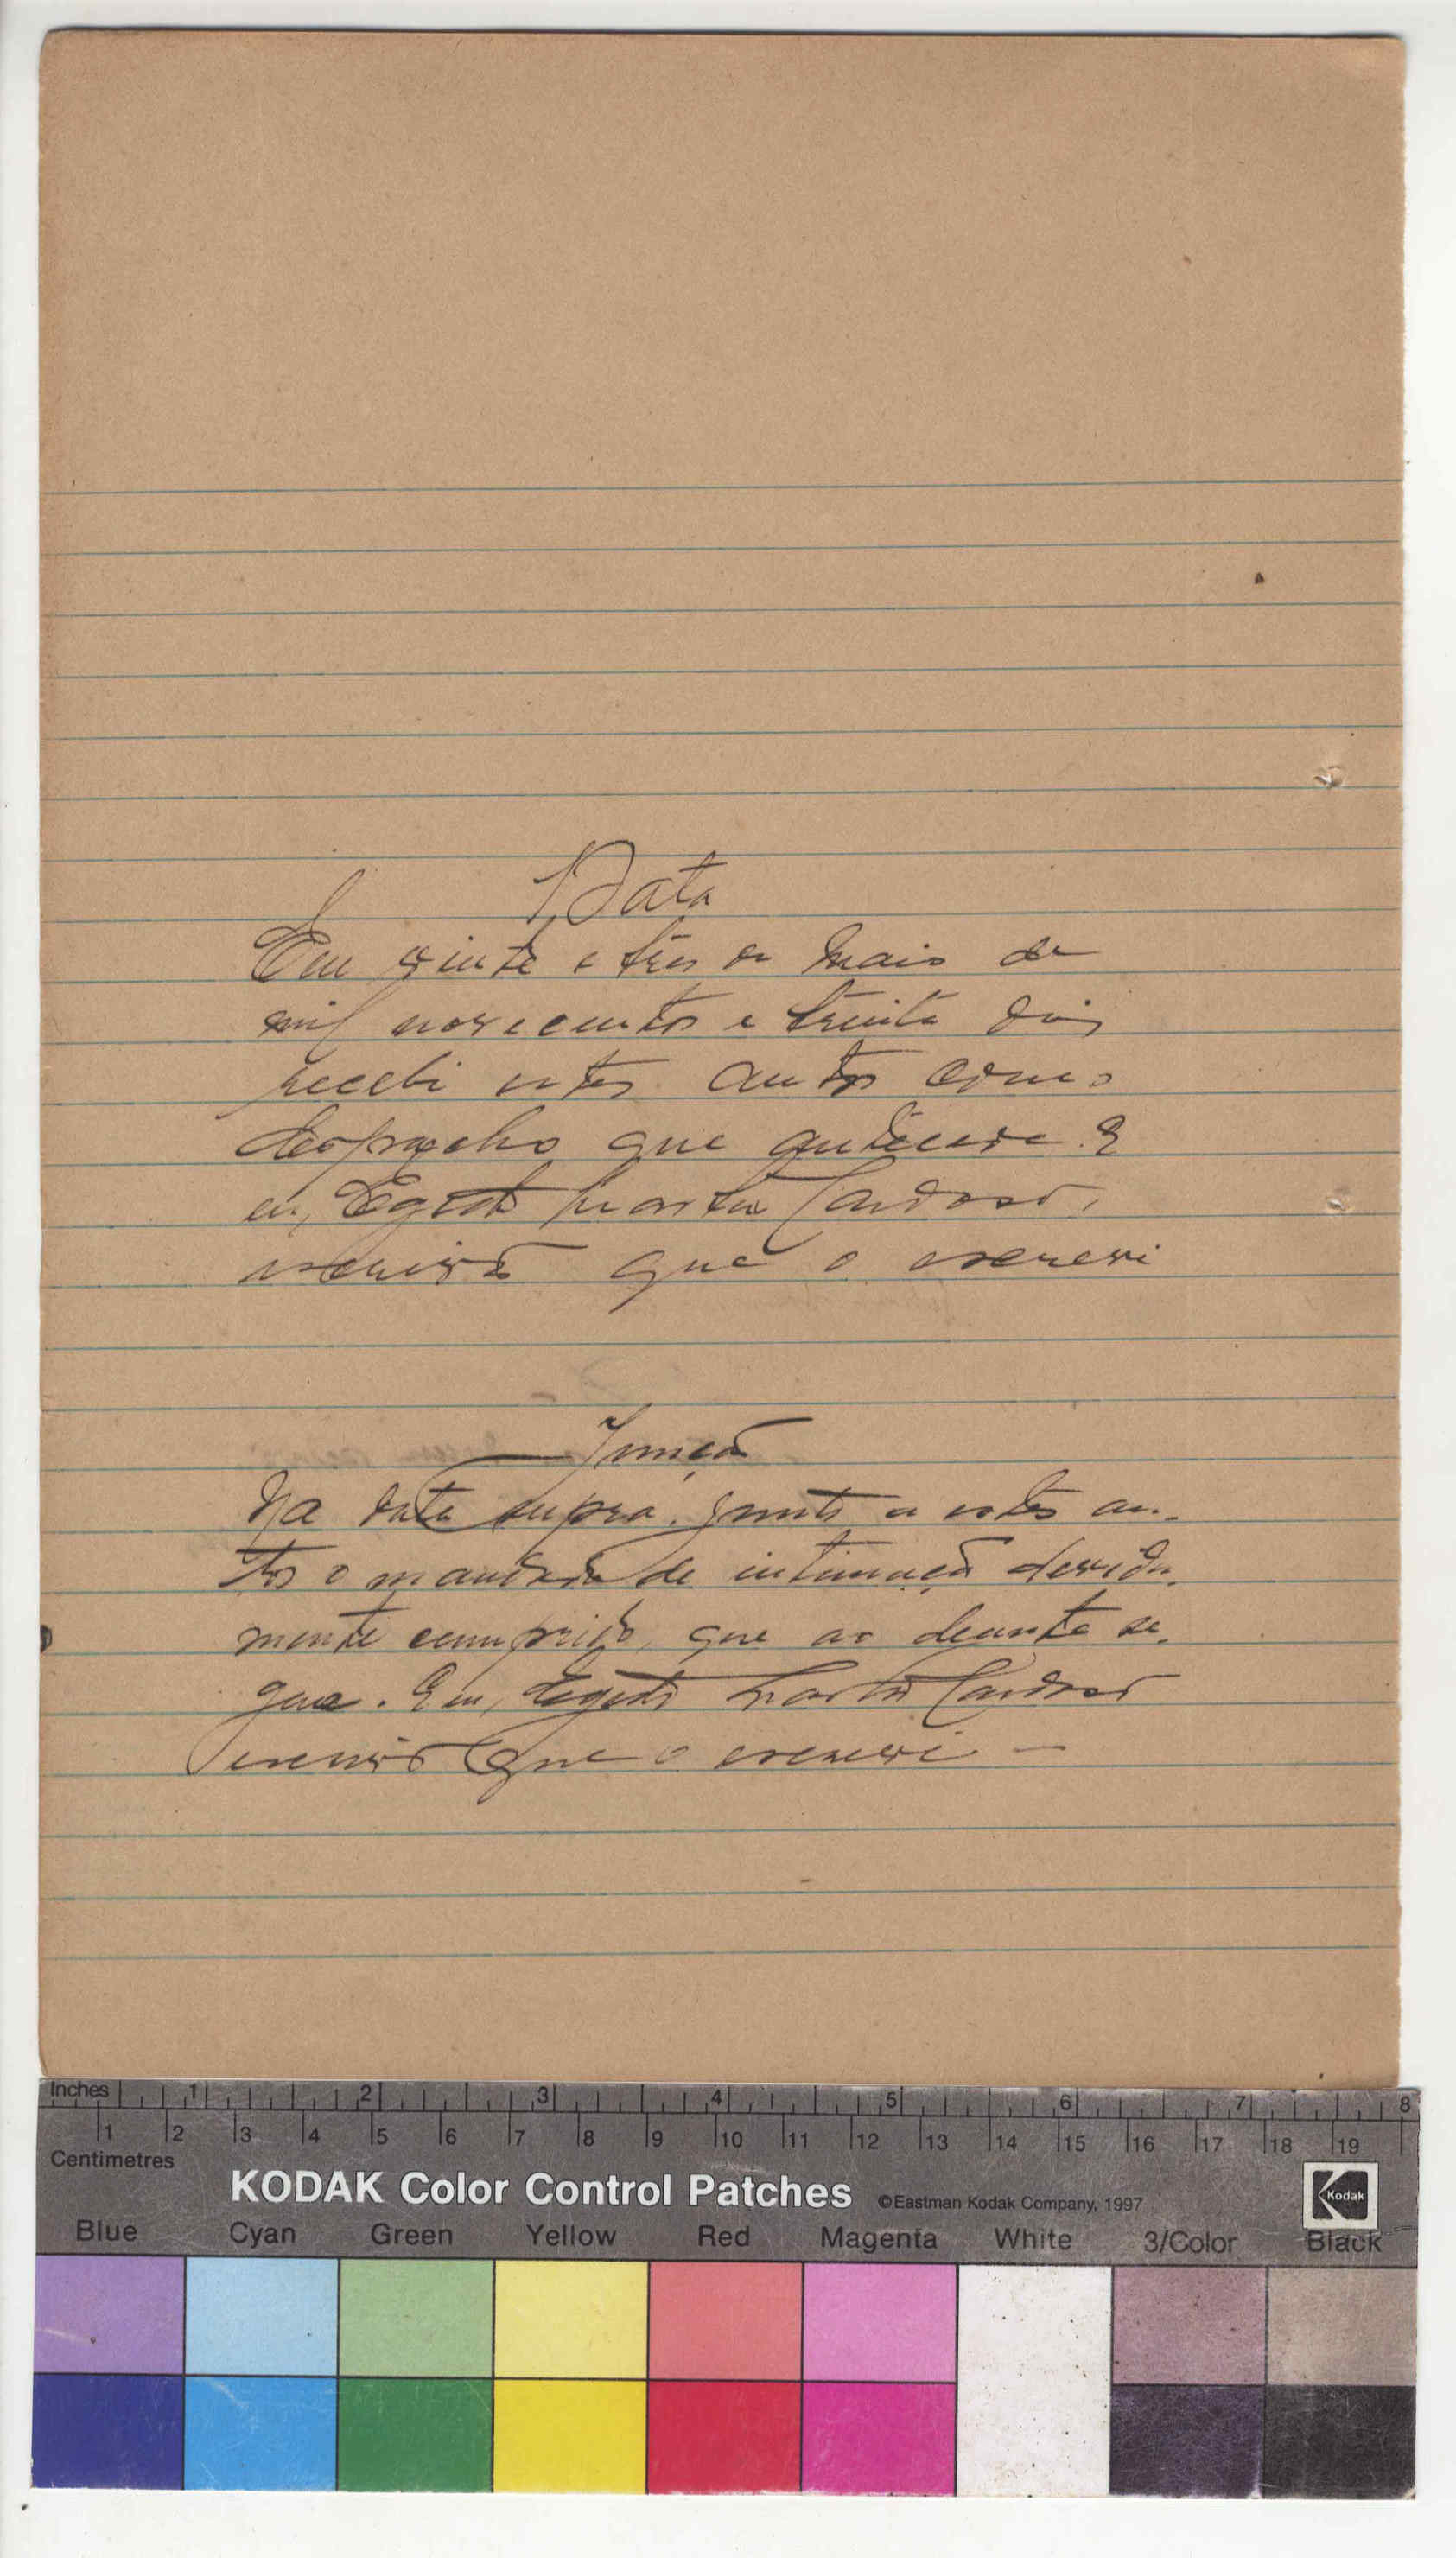 Data
Em vinte e tres de Maio de
mil novecentos e trinta dois
recebi estes autos com o
despacho que antecede. E
eu, Egidio Cardoso,
escrivão que o escrevi
Junção
Na data supra, junto a estes au-
tos o mandado de intimação devida-
mente cumprido, que ao deante se-
gue. Eu, Egidio Cardoso
escrivão que o escrevi —
Inches 1 2 3 4 5 6 7 8
1 2 3 4 5 6 7 8 9 10 11 12 13 14 15 16 17 18 19
Centimetres
KODAK Color Control Patches ©Eastman Kodak Company, 1997 Kodak
Blue Cyan Green Yellow Red Magenta White 3/Color Black